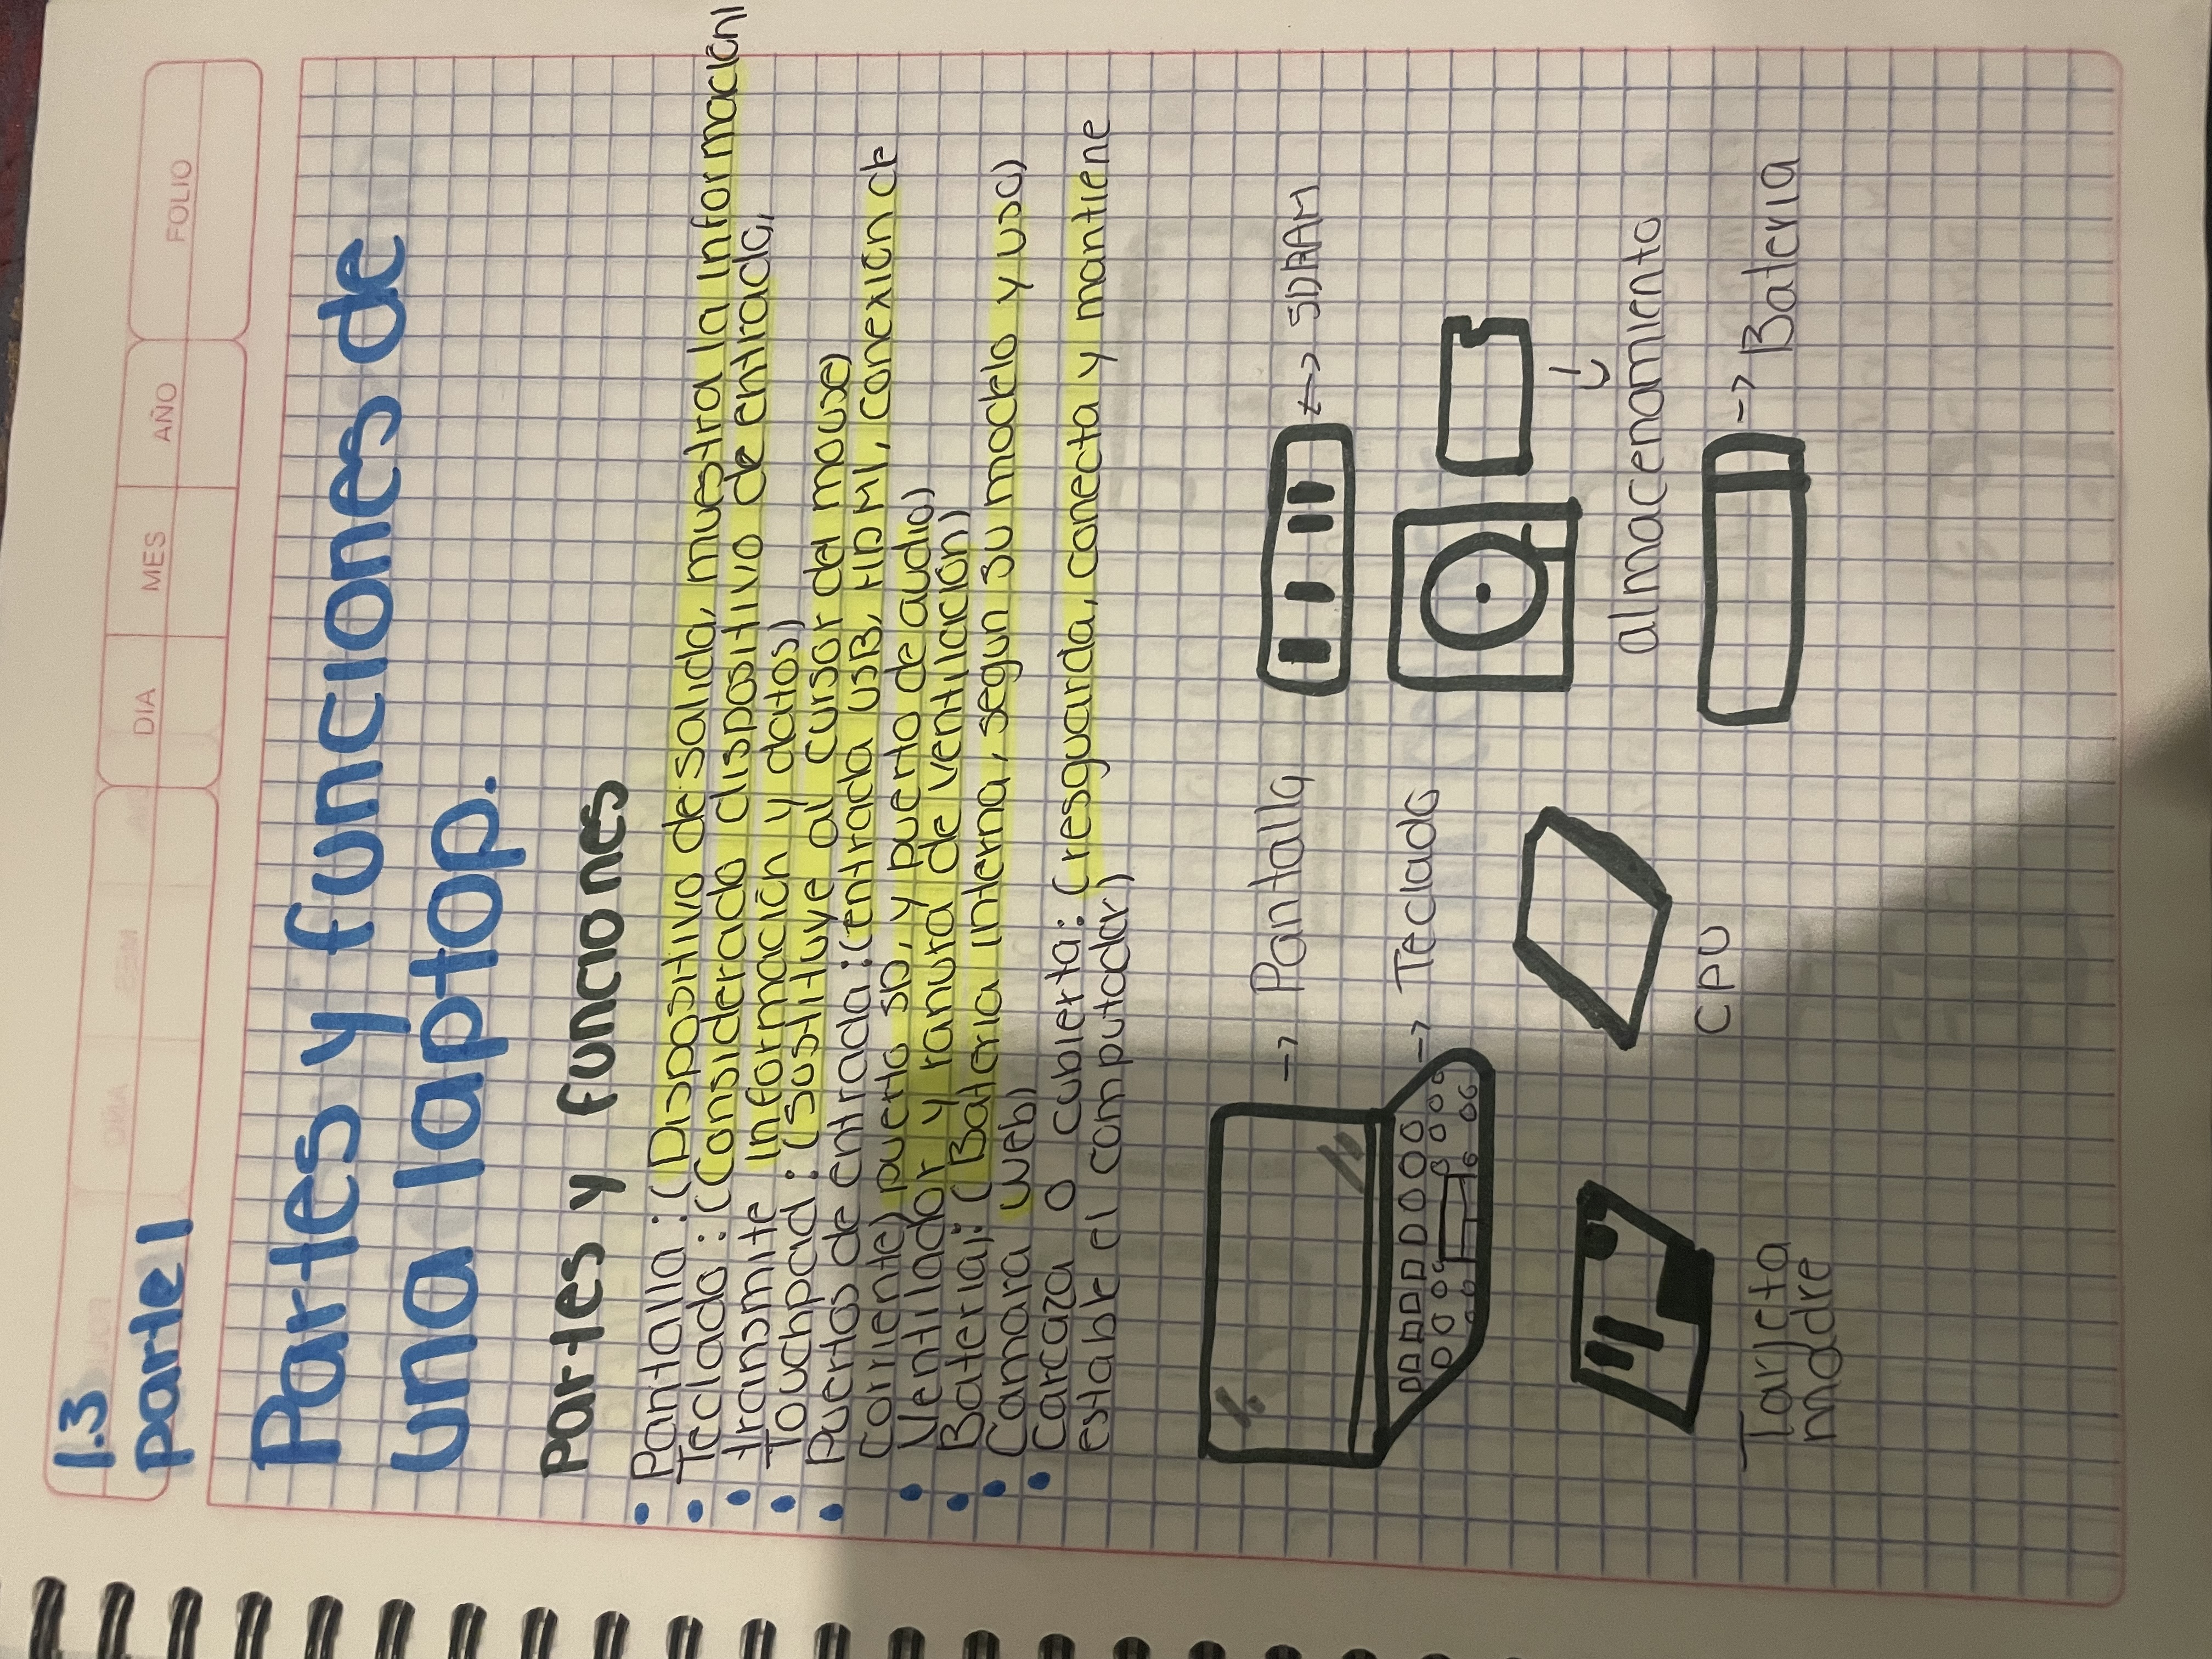 1.3
parte 1
DIA MES AÑO FOLIO
Partes y funciones de
una laptop.
Partes y funciones
• Pantalla: (Dispositivo de salida, muestra la información)
• Teclado: (Considerado dispositivo de entrada,
• transmite información y datos)
• Touchpad: (Sustituye al cursor del mouse)
• Puertos de entrada: (entrada USB, HDMI, conexión de
corriente) puerto SD, y puerto de audio)
• Ventilador y ranura de ventilación)
• Bateria): (Bateria interna, segun su modelo y uso)
• Camara web)
• Carcaza o cubierta: (resguarda, conecta y mantiene
estable el computador)
-> Pantalla
<-> SDRAM
-> Teclado
almacenamiento
CPU
-> Bateria
Tarjeta
madre